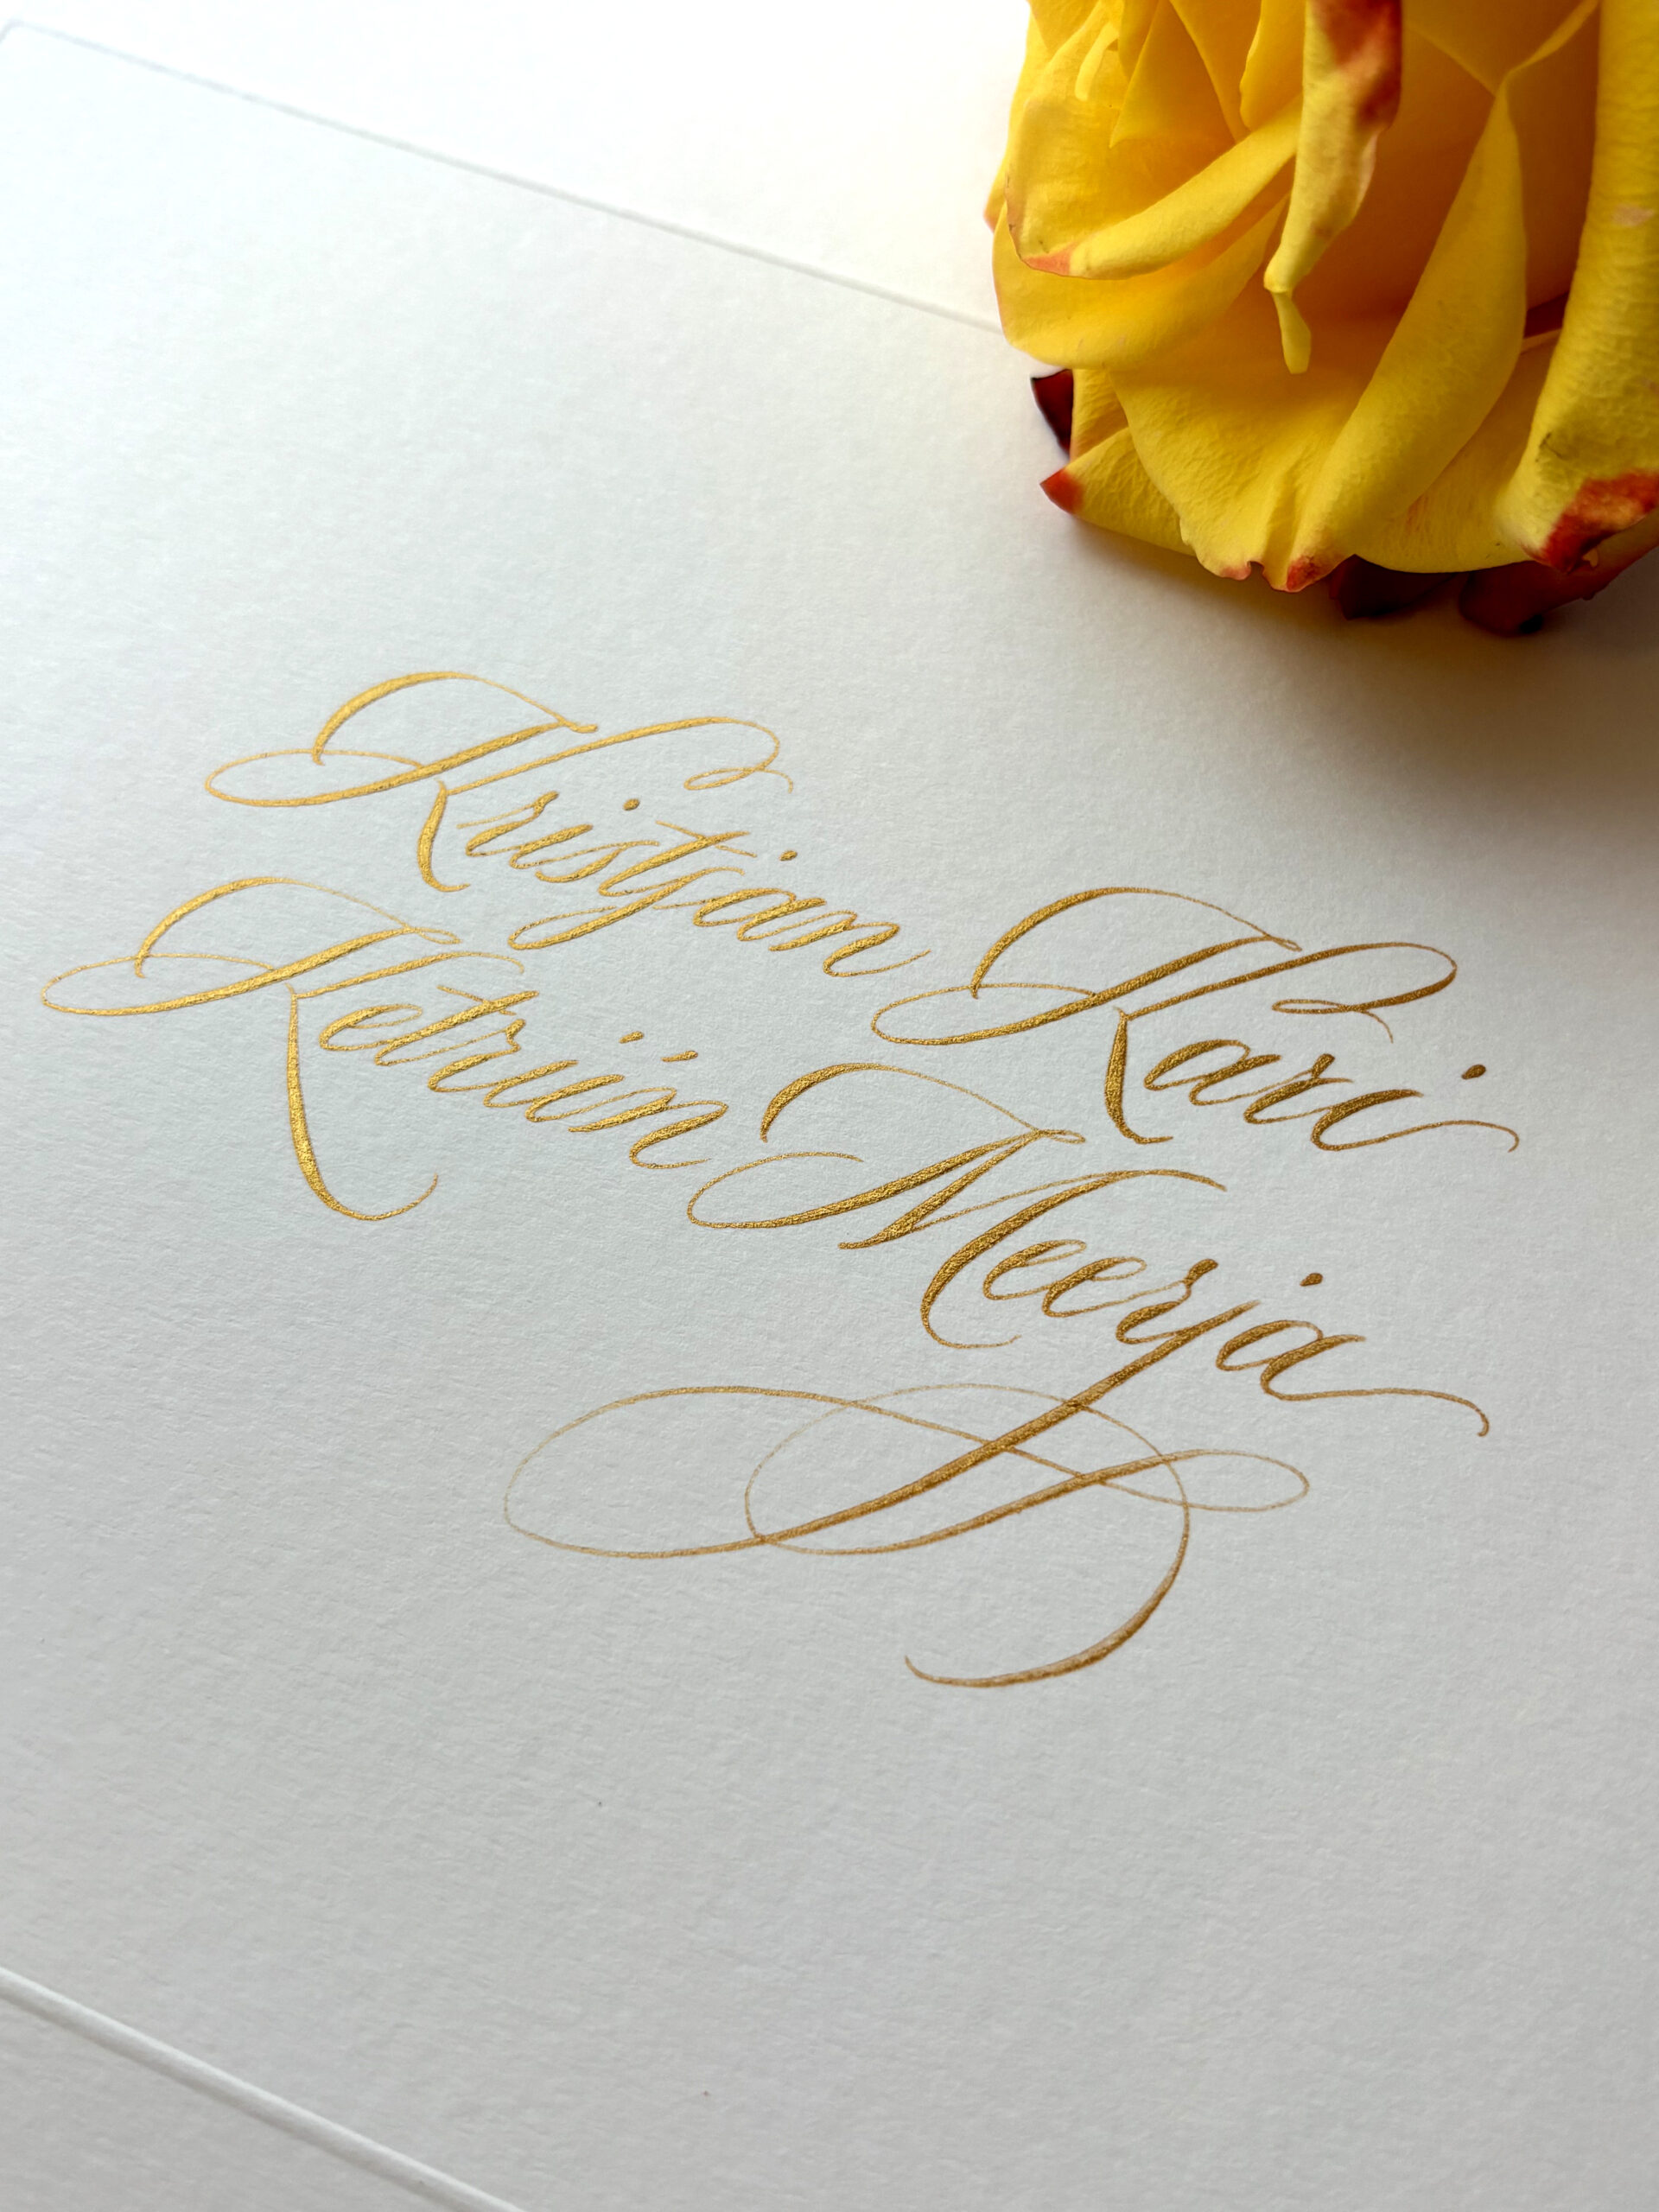 Kristjan Kari
Ketriin Meerja